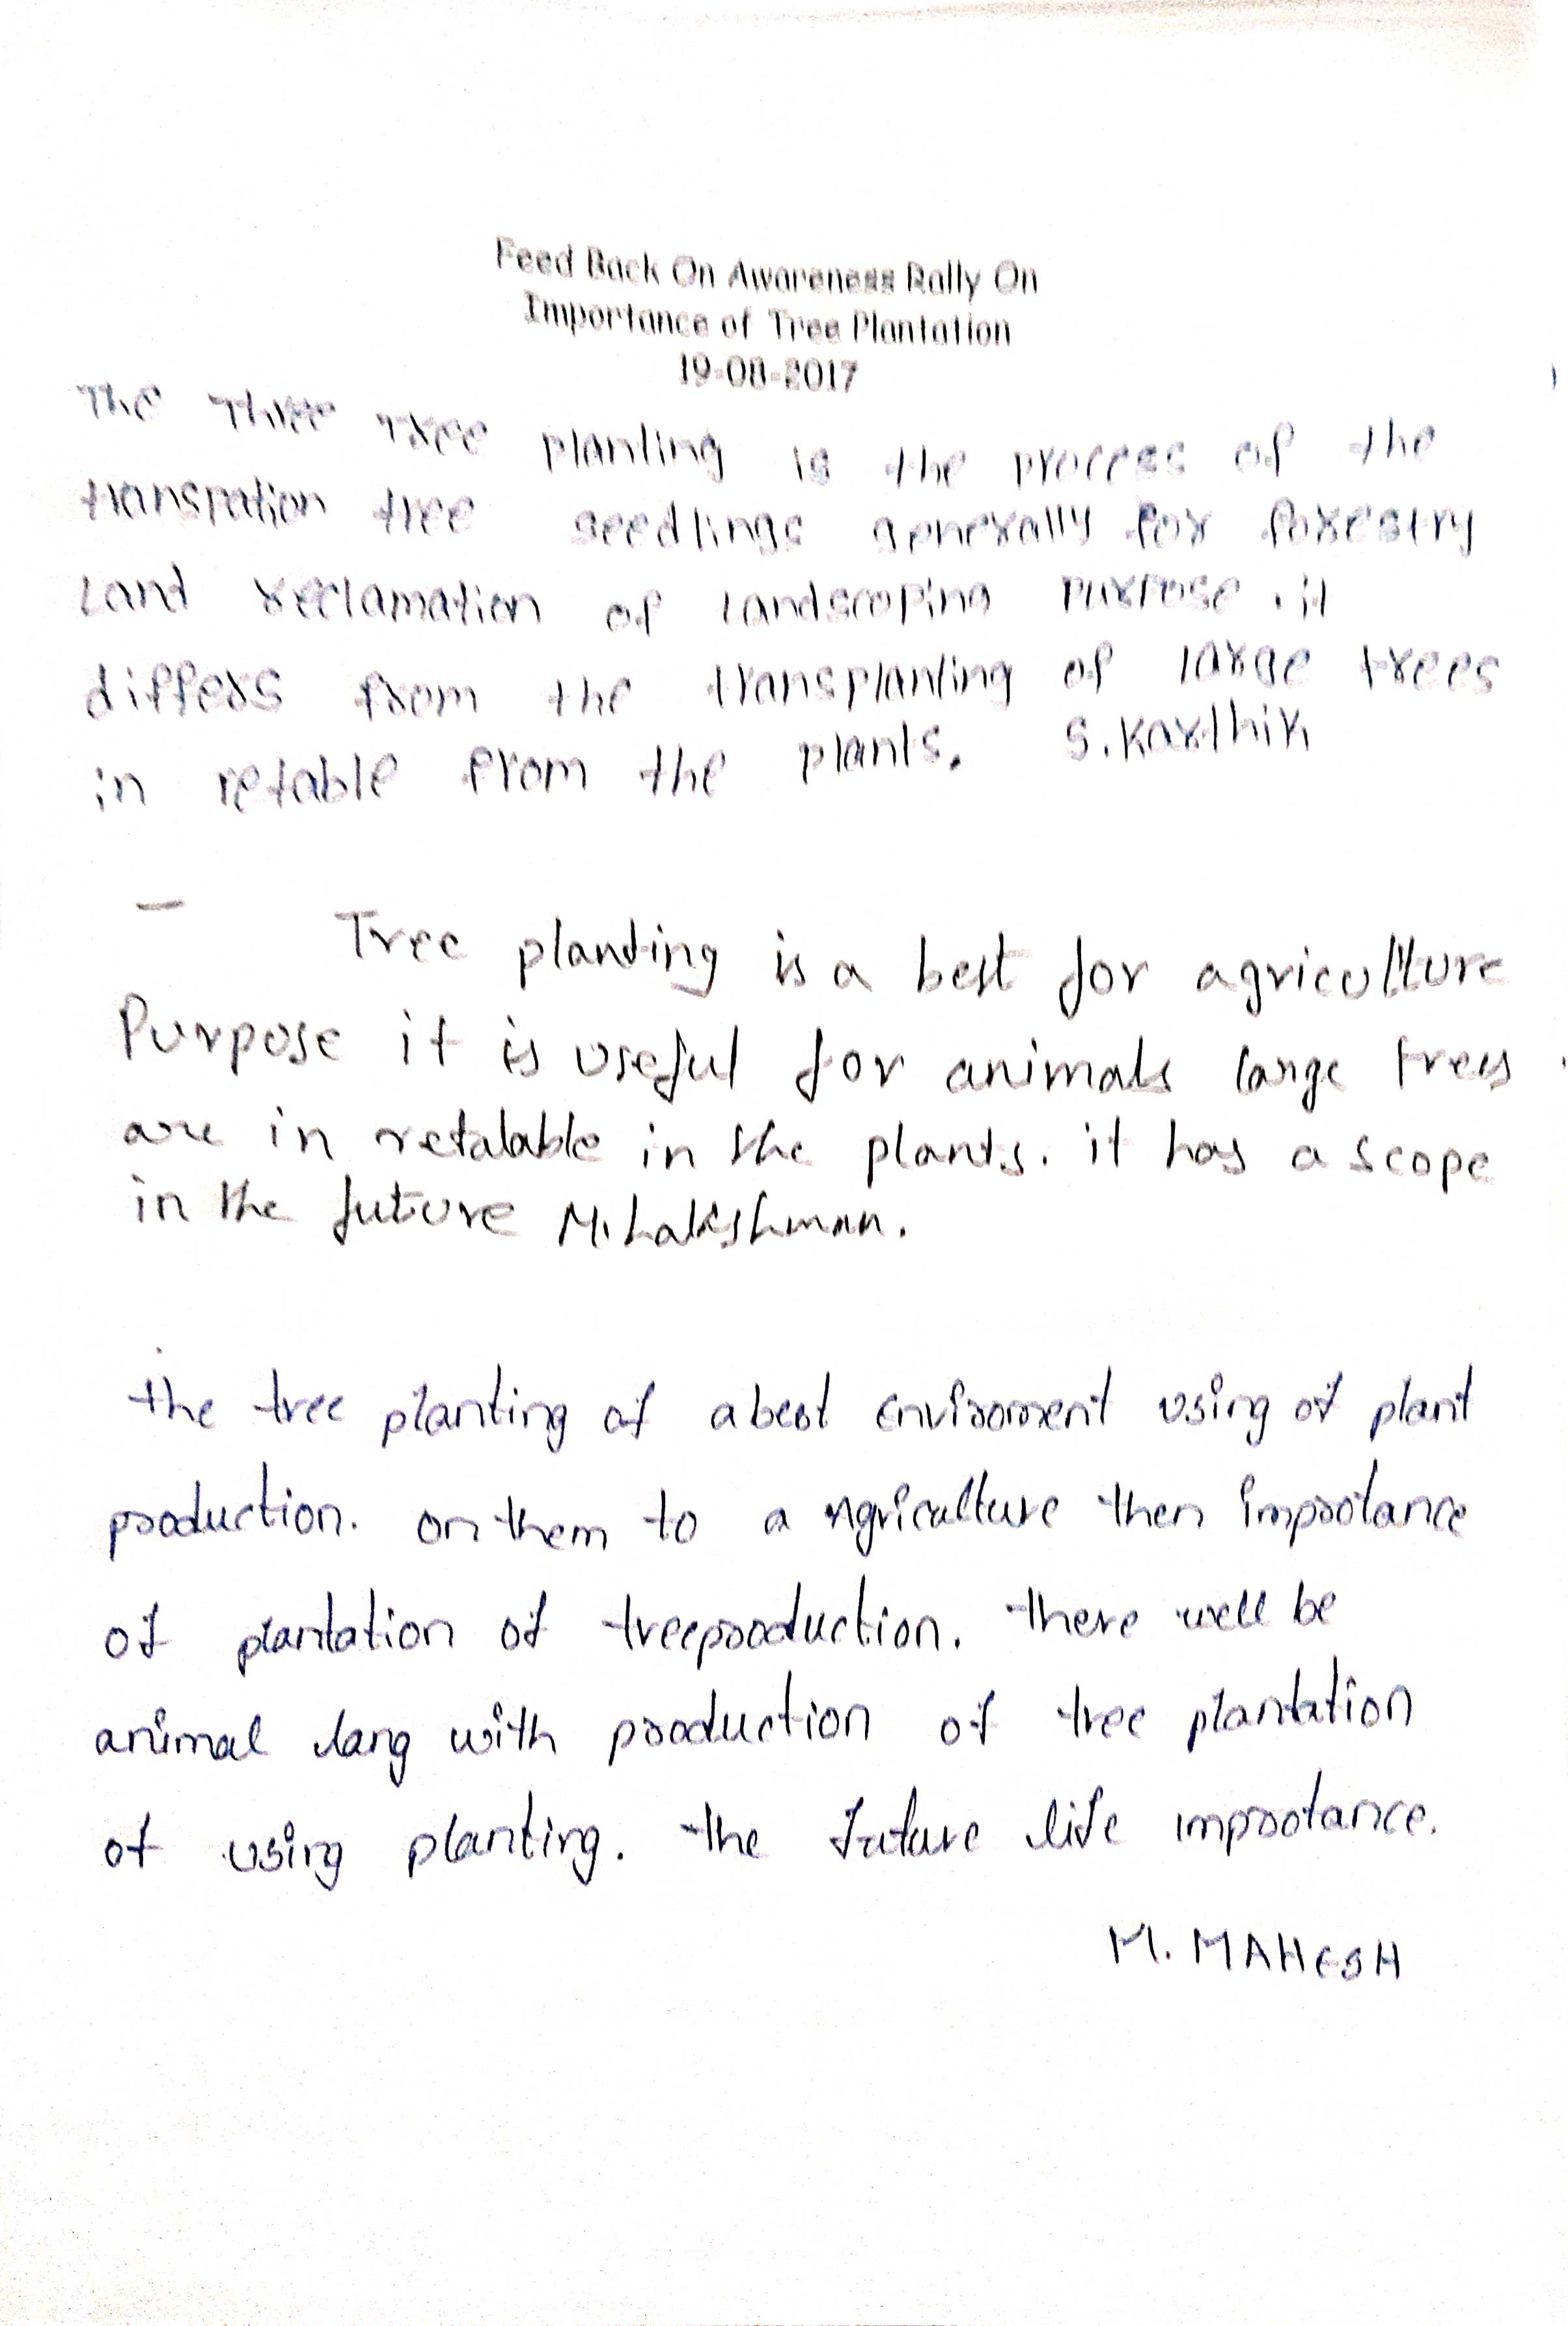 Feed Back On Awareness Rally On
Importance of Tree Plantation
19-08-2017
The Three Tree planting is the process of the
transpation tree seedlings generally for forestry
Land reclamation of Landscoping purpose . it
differs from the transplanting of large trees
in retable from the plants. S. Karthik
Tree planting is a best for agriculture
Purpose it is useful for animals large trees
are in retalable in the plants. it has a scope
in the future M. Lakshman.
the tree planting of a best enviroment using of plant
production. on them to a Agriculture then improtance
of plantation of treeproduction. there well be
animal lang with production of tree plantation
of using planting. the future life improtance.
M. MAHESH